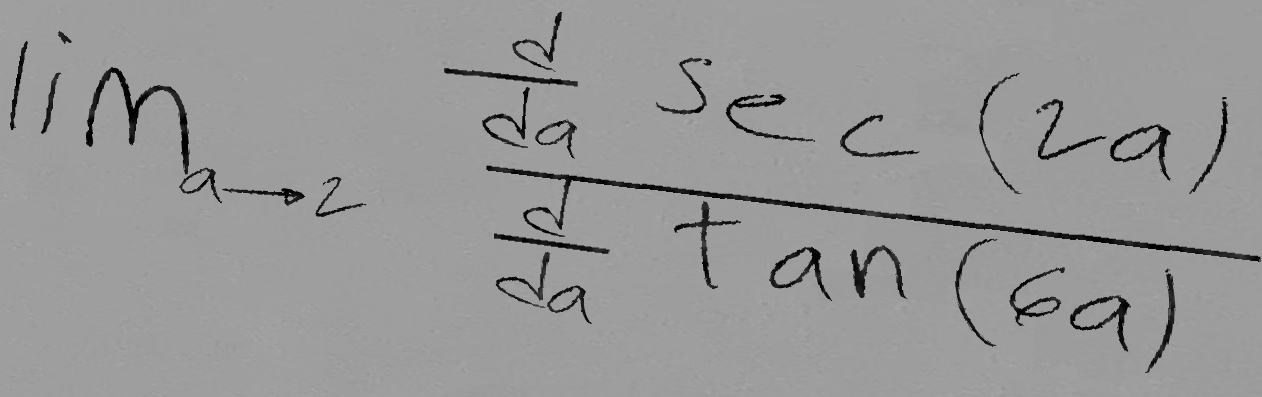 \lim_{a \to 2} \frac{\frac{d}{da} \sec(2a)}{\frac{d}{da} \tan(6a)}